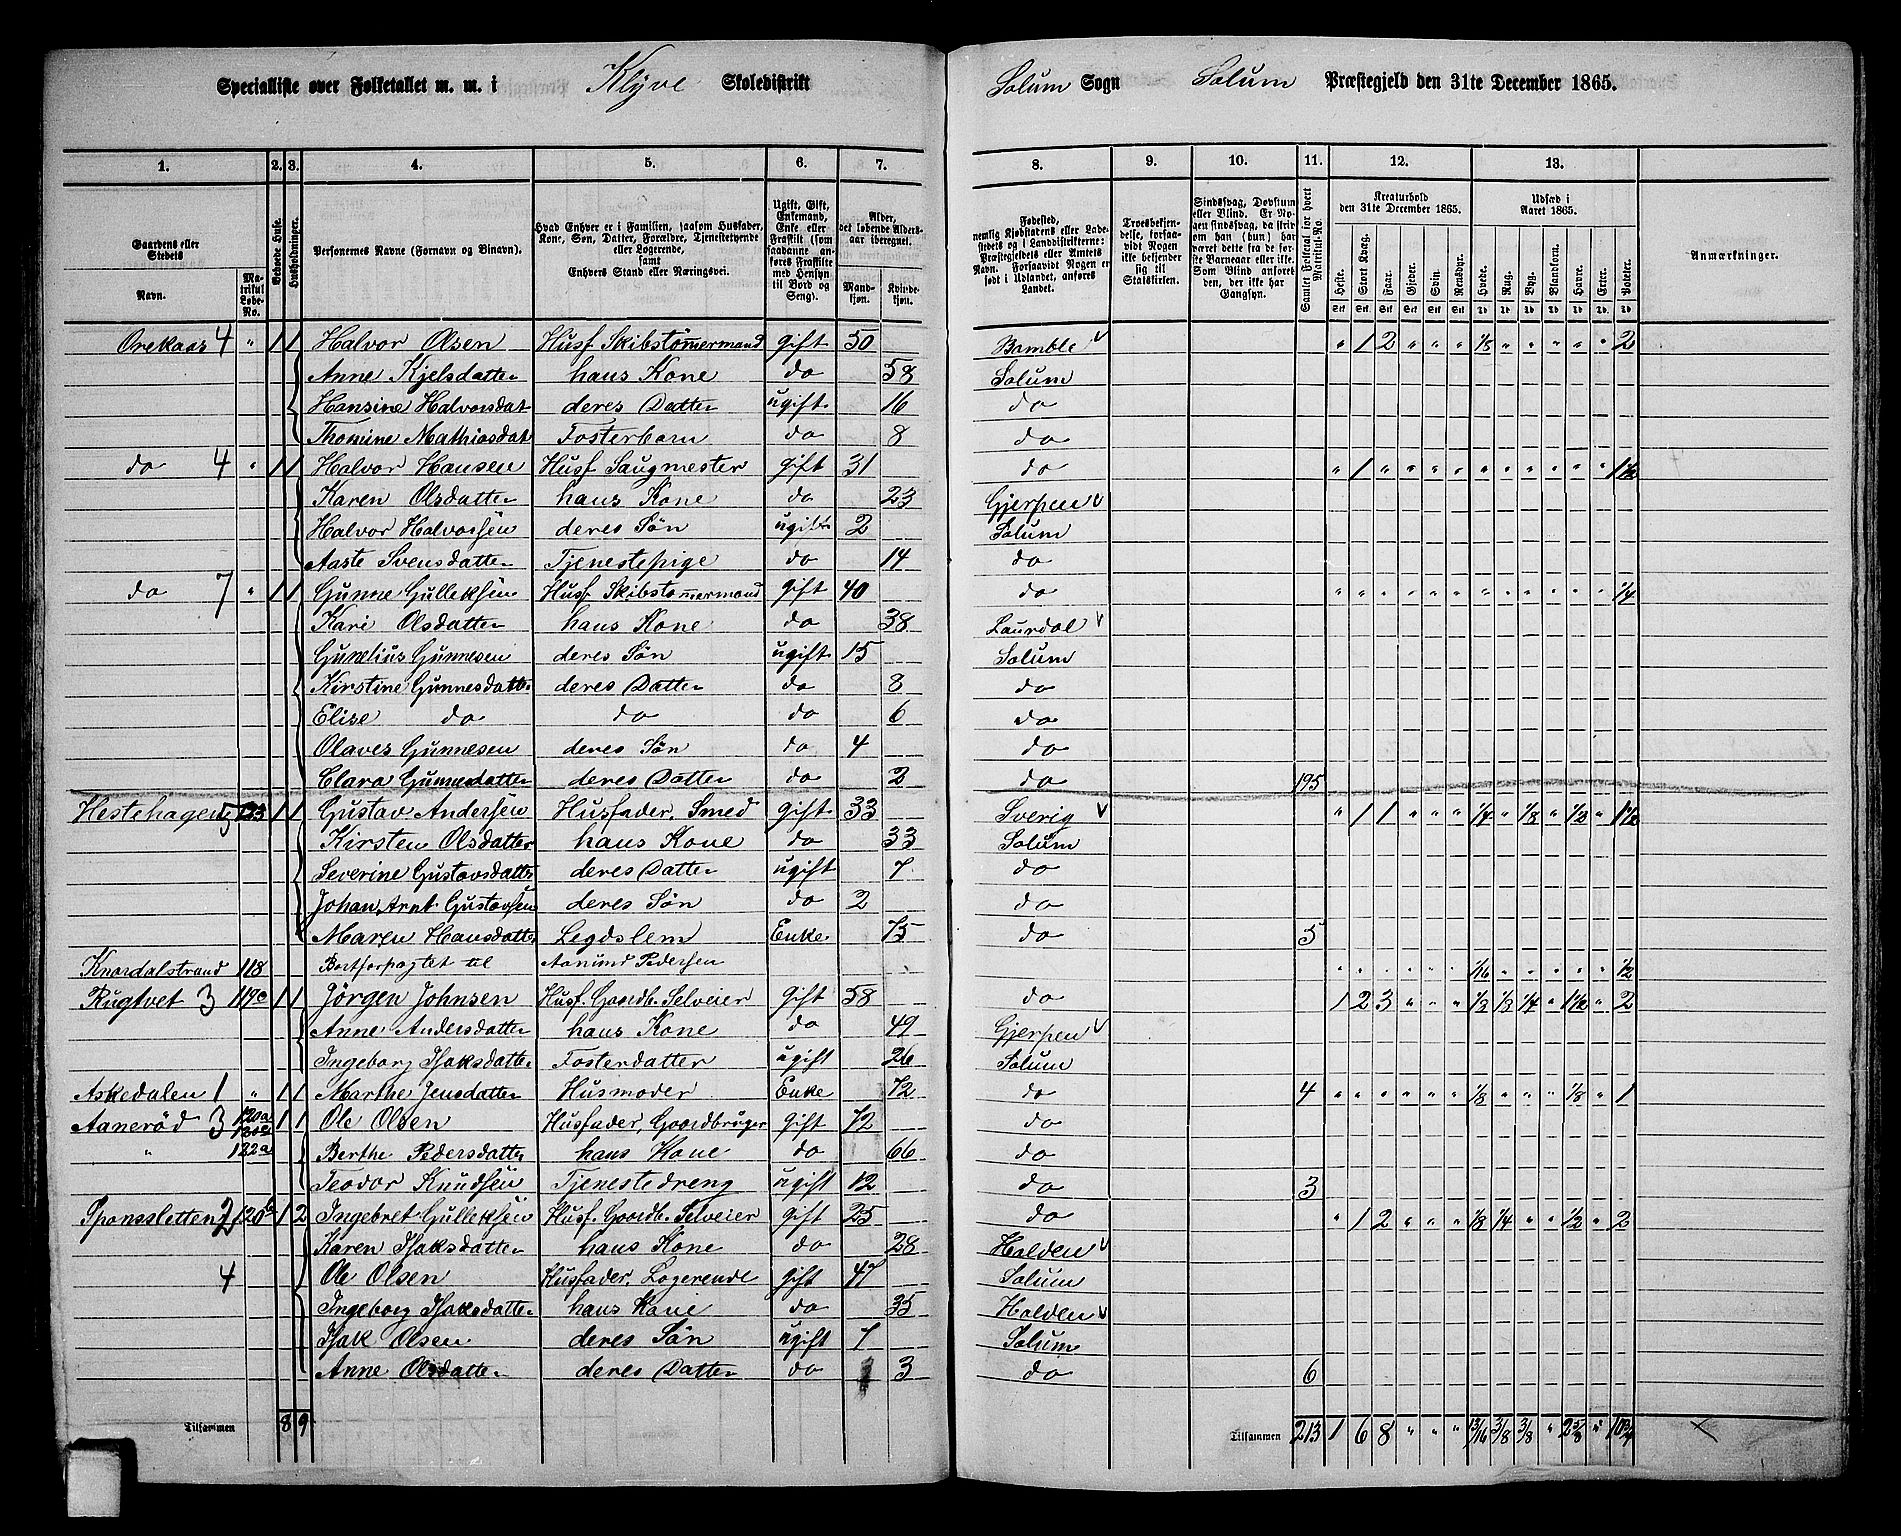 Specialliste over Folketallet m. m. i Klyve Skoledistrikt Solum Sogn Solum Præstegjeld den 31te December 1865.
1. 2. 3. 4. 5. 6. 7. 8. 9. 10. 11. 12. 13.
Gaardens eller Stedets Navn. Matrikul Løbe-No. Beboede Huse. Husholdninger. Personernes Navne (Fornavn og Tilnavn). Hvad Enhver er i Familien, saasom Husfader, Kone, Søn, Datter, Forældre, Tjenestetyende eller Logerende, samt Enhvers Stand eller Næringsvei. Ugift, Gift, Enkemand, Enke eller Fraskilt Alder, det løbende Aldersaar iberegnet. Mandkjøn. Kvindekjøn. Fødested, Anmærkninger.
Kreaturhold den 31te December 1865. Udsæd i Aaret 1865.
Heste. Stort Kvæg. Faar. Gjeder. Svin. Rensdyr. Hvede. Rug. Byg. Blandkorn. Havre. Erter. Poteter.
Orekaas 4 " 1 1 Halvor Olsen Husf Skibstømermand gift 50 Bamble " 1 2 " " " 1/8 " " " " " 2
Anne Kjelsdatter hans Kone do 58 Solum
Hansine Halvorsdat deres Datter ugift 16 do
Thomine Mathiasdat Fosterbarn do 8 do
do 4 " 1 1 Halvor Hansen Husf Saugmester gift 31 do " 1 " " " " " " " " " " 1 1/2
Karen Olsdatter hans Kone do 23 Gjerpen
Halvor Halvorsen deres Søn ugift 2 Solum
Aaste Svensdatter Tjenestepige do 14 do
do 7 " 1 1 Gunne Gulleksen Husf Skibstomermand gift 40 do " " " " " " " " " " " " 1/4
Kari Olsdatter hans Kone do 38 Laurdal
Gunelius Gunnesen deres Søn ugift 15 Solum
Kirstine Gunnesdatter deres Datter do 8 do
Elise do do do 6 do
Olaves Gunnesen deres Søn do 4 do
Clara Gunnesdatter deres Datter do 2 do 195
Hestehagen 5 1 1 Gustav Andersen Husfader, Smed gift 33 Sverig " 1 1 " " " 1/4 " 1/8 " 1/2 " 1 1/2
Kirsten Olsdatter hans Kone do 33 Solum
Severine Gustavsdatter deres Datter ugift 7 do
Johan Arnt Gustavsen deres Søn do 2 do
Maren Hansdatter Legdslem Enke 75 do 5
Knardalstrand 118 Bortforpagtet til Aanund Pedersen " " " " " " 1/16 " " " " " 1/2
Rugtvet 3 119a 1 1 Jörgen Johnsen Husf. Gaardb. Selveier Gift 58 do 1 2 3 " " " 1/2 1/2 1/4 " 1 1/2 " 2
Anne Andersdatter hans Kone do 49 Gjerpen
Ingeborg Isaksdatter Fosterdatter ugift 26 Solum
Askedalen 1 " 1 1 Marthe Jensdatter Husmoder Enke 72 do 4 " " " " " " 1/8 " " " 1/8 " 1
Aanerød 3 120a 1 1 Ole Olsen Husfader, Gaardbruger gift 72 do
" 122a Berthe Pedersdatter hans Kone do 66 do
Teodor Knudsen Tjenestedreng ugift 12 do 3
Sponssletten 2 120b 1 2 Ingebret Gulleksen Husf. Gaardb. Selveier gift 25 do " 1 2 " " " 1/8 1/4 " " 1/2 " 2
Karen Isaksdatter hans Kone do 28 Holden
4 Ole Olsen Husfader, Logerende gift 47 Solum
Ingeborg Isaksdatter hans Kone do 35 Holden
Isak Olsen deres Søn ugift 7 Solum
Anne Olsdatter deres Datter do 3 do 6
Tilsammen 8 9 Tilsammen 213 1 6 8 " " " 13/16 3/8 3/8 " 2 5/8 " 10 3/4